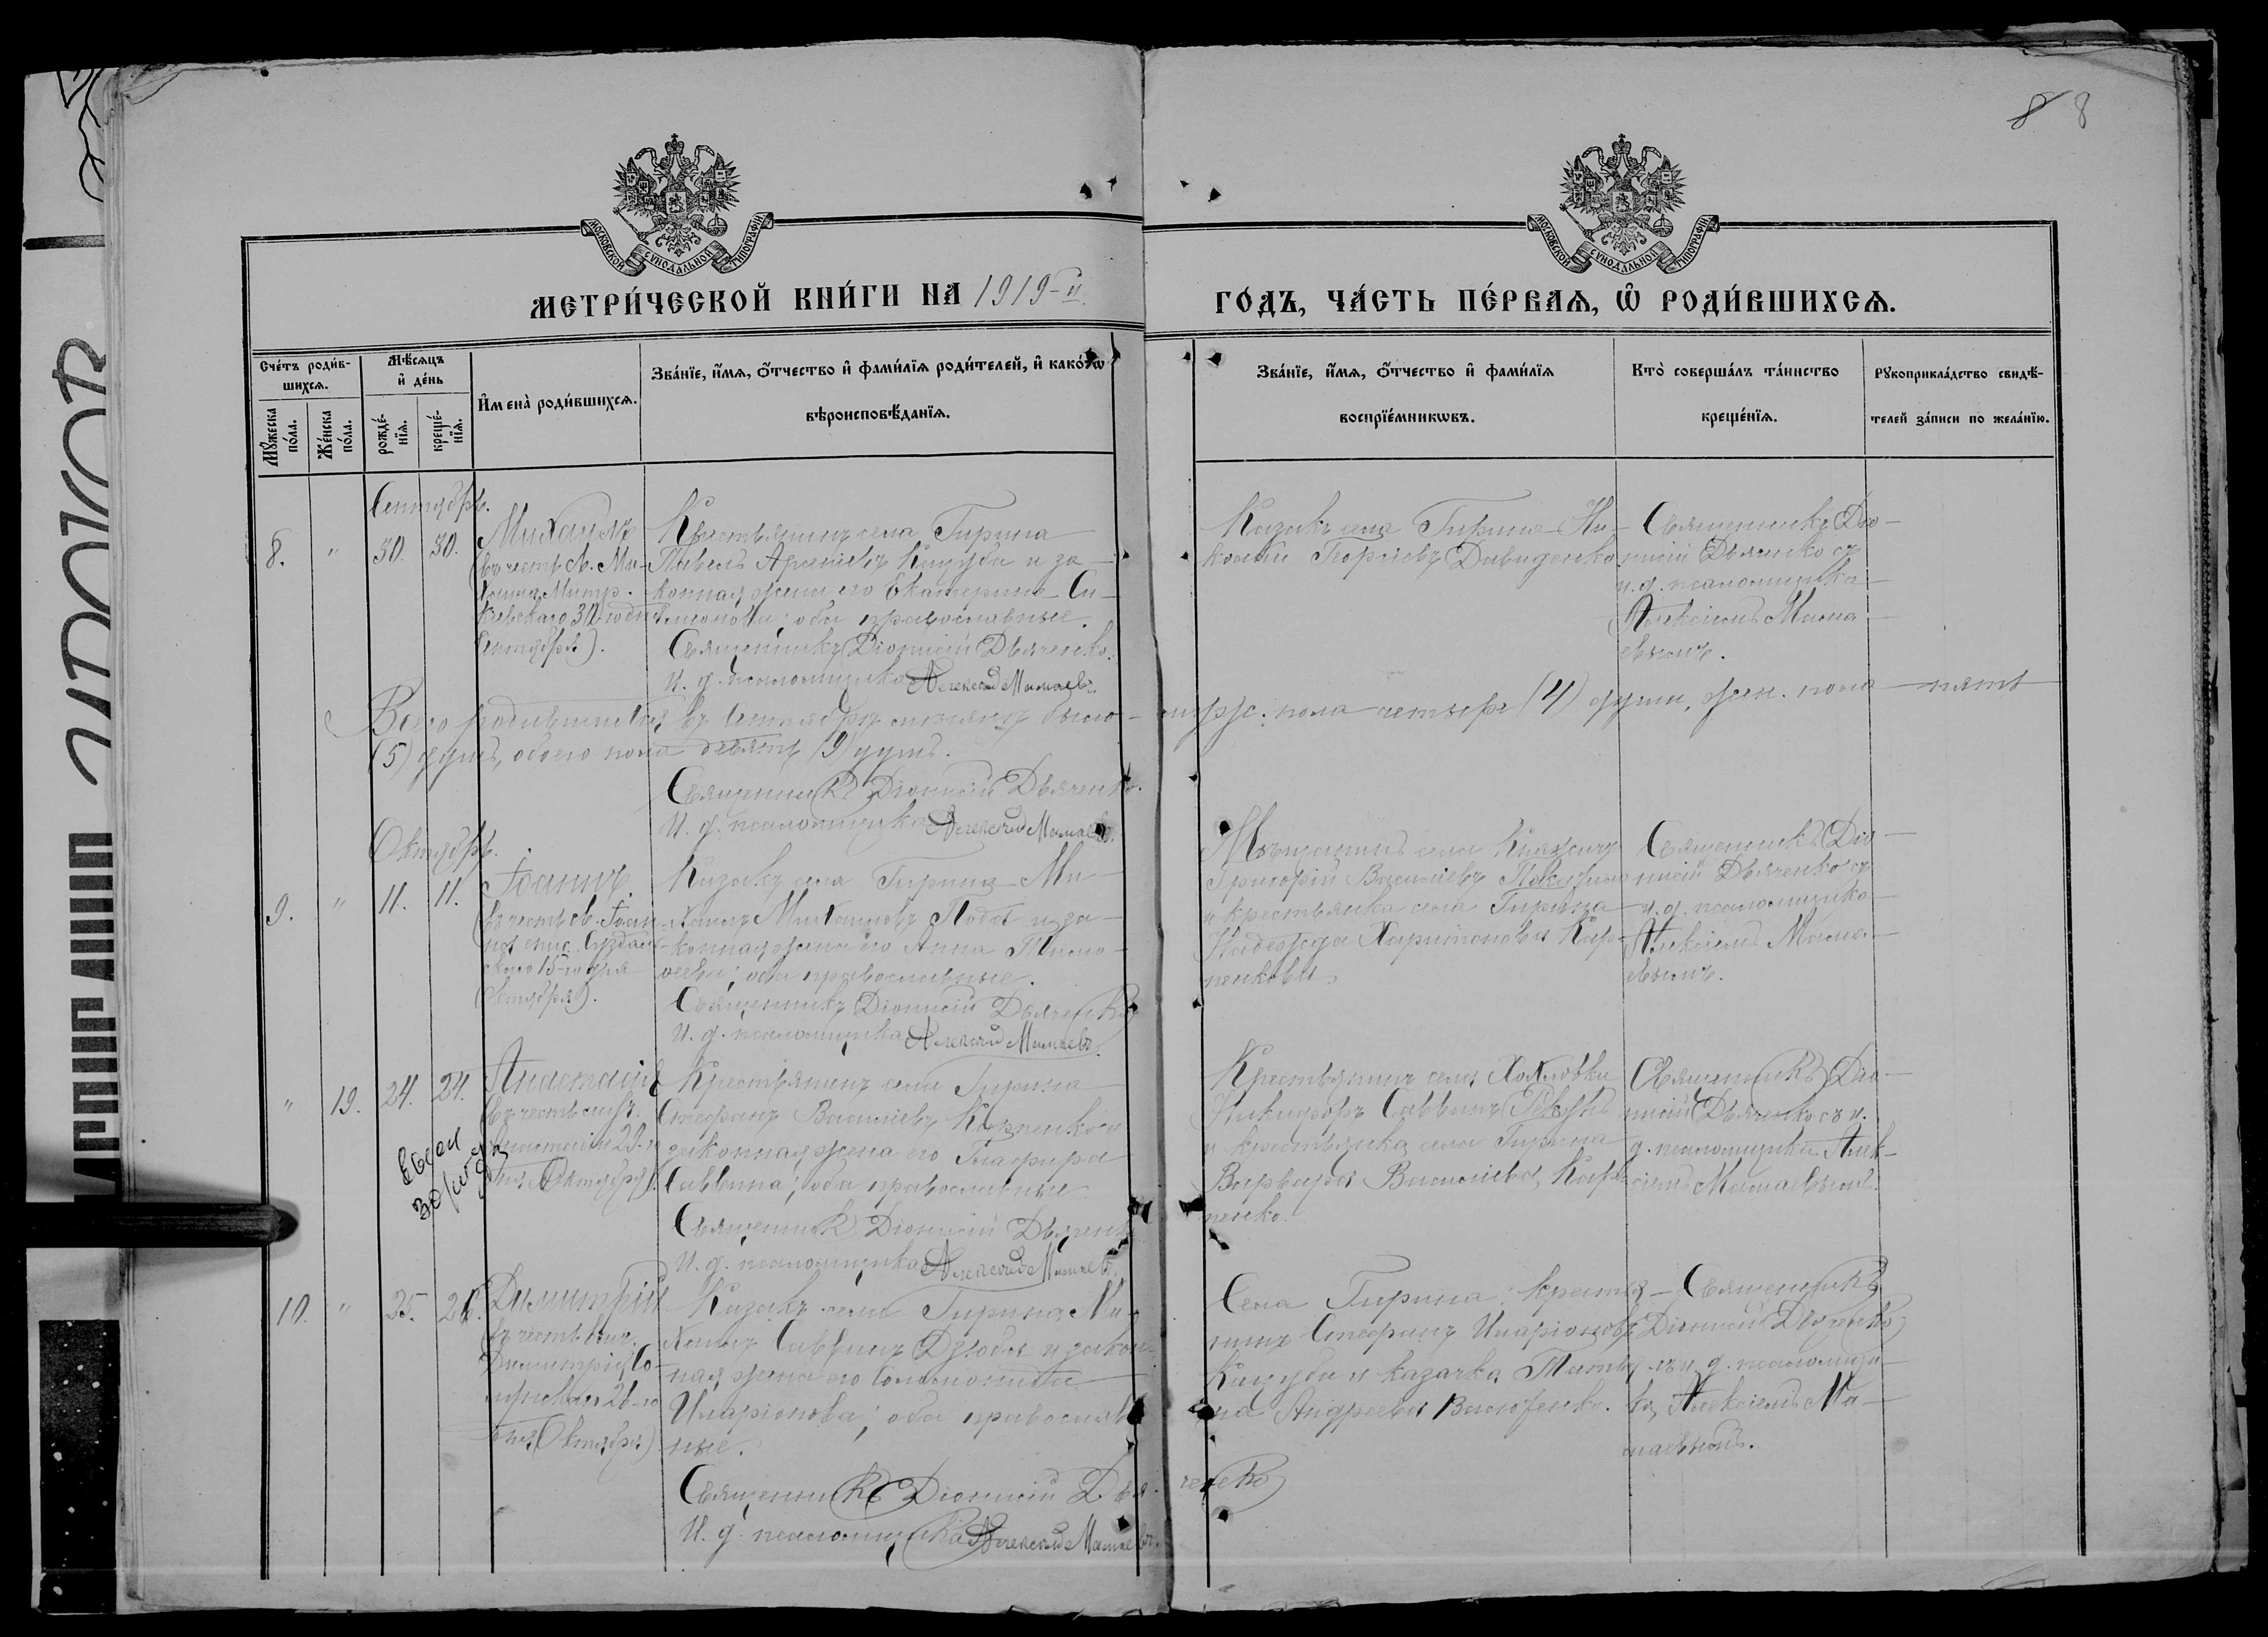 8 8
МОСКОВСКОЙ СѴНОДАЛЬНОЙ ТИПОГРАФІИ
МОСКОВСКОЙ СѴНОДАЛЬНОЙ ТИПОГРАФІИ
МЕТРИ́ЧЕСКОЙ КНИ́ГИ НА 1919-й
ГО́ДЪ, ЧА́СТЬ ПЕ́РВАѦ, Ѡ РОДИ́ВШИХСѦ.
Сче́тъ роди́в-
шихсѧ.
Мꙋ́жеска по́ла.
Же́нска по́ла.
Мѣ́сѧцъ
и де́нь
рожде́-
нїѧ.
креще́-
нїѧ.
Имена̀ роди́вшихсѧ.
Зва́нїе, и́мѧ, ѻ́тчество и фами́лїѧ роди́телей, и како́гѡ
вѣроисповѣ́данїѧ.
Зва́нїе, и́мѧ, ѻ́тчество и фами́лїѧ
воспрїе́мникѡвъ.
Кто̀ соверша́лъ та́инство
креще́нїѧ.
Рꙋкоприкла́дство свидѣ́-
телей за́писи по жела́нїю.
Сентябрь.
8. " 30. 30.
Михаилъ
(въ честь св. Ми-
хаила Митр.
Кіевскаго 30 го дня
Сентября).
Крестьянинъ села Гирина
Павелъ Арсеніевъ Кацуба и за-
конная жена его Екатерина Си-
меонова; оба православные.
Священникъ Діонисій Дьяченко.
И. д. псаломщика Алексѣй Мамаевъ.
Казакъ села Гирина Ни-
колай Георгіевъ Давиденко
Священникъ Діо-
нисій Дьяченко съ
и. д. псаломщика
Алексіемъ Мама-
евымъ.
Всего родившихся въ Сентябрѣ мѣсяцѣ было муж. пола четыре (4) души, жен. пола пять
(5) душъ, обоего пола девять (9) душъ.
Священникъ Діонисій Дьяченко.
И. д. псаломщика Алексѣй Мамаевъ.
Октябрь.
9. " 11. 11.
Іоаннъ
(въ честь св. Іоан-
на епис. Суздаль-
скаго 15-го дня
Октября).
Казакъ села Гирина Ми-
хаилъ Михаиловъ и за-
конная жена его Анна Тимо-
ѳеева; оба православные.
Священникъ Діонисій Дьяченко
И. д. псаломщика Алексѣй Мамаевъ.
Мѣщанинъ села
Григорій Василіевъ
и крестьянка села Гирина
Надежда Харитонова Кар-
пенкова
Священникъ Діо-
нисій Дьяченко съ
и. д. псаломщика
Алексіемъ Мама-
евымъ.
" 19. 24. 24.
Анастасія
(въ честь
Анастасіи 29-го
дня Октября).
Крестьянинъ села Гирина
Стефанъ Василіевъ Карпенко и
законная жена его Глафира
Саввина; оба православные
Священникъ Діонисій Дьяченко
И. д. псаломщика Алексѣй Мамаевъ.
Крестьянинъ села Хохловки
Никифоръ Саввинъ
и крестьянка села Гирина
Варвара Василіева Кар-
пенко.
Священникъ Діо-
нисій Дьяченко съ и.
д. псаломщика Алек-
сіемъ Мамаевымъ.
10. " 25. 26.
Димитрій
(въ честь влмч.
Димитрія Со-
лунскаго 26-го
дня Октября)
Казакъ села Гирина Ми-
хаилъ Саввинъ Дзюба и закон-
ная жена его Соломонида
Иларіонова; оба православ-
ные.
Священникъ Діонисій Дьяченко
И. д. псаломщика Алексѣй Мамаевъ.
Села Гирина: крестья-
нинъ Стефанъ Иларіоновъ
Кацуба и казачка Татья-
на Андреева
Священникъ
Діонисій Дьяченко
съ и. д. псаломщи-
ка Алексіемъ Ма-
маевымъ.